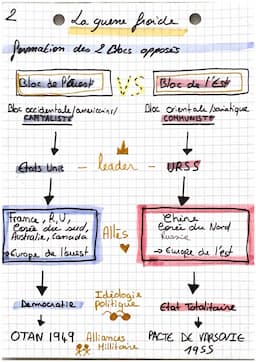 2
La guerre froide
Formation des 2 Blocs opposés
Bloc de l'Ouest VS Bloc de l'Est
Bloc occidentale/americains/ Bloc orientale/soviatique
CAPITALISTE COMMUNISTE
Etats Unis - leader - URSS
France, R.U, Chine
Corée du sud, Corée du Nord
Australie, Canada Alliés Russie
→ Europe de l'ouest → Europe de l'est
Démocratie Idéologie politique Etat Totalitaire
OTAN 1949 Alliances Militaire PACTE DE VARSOVIE
1955